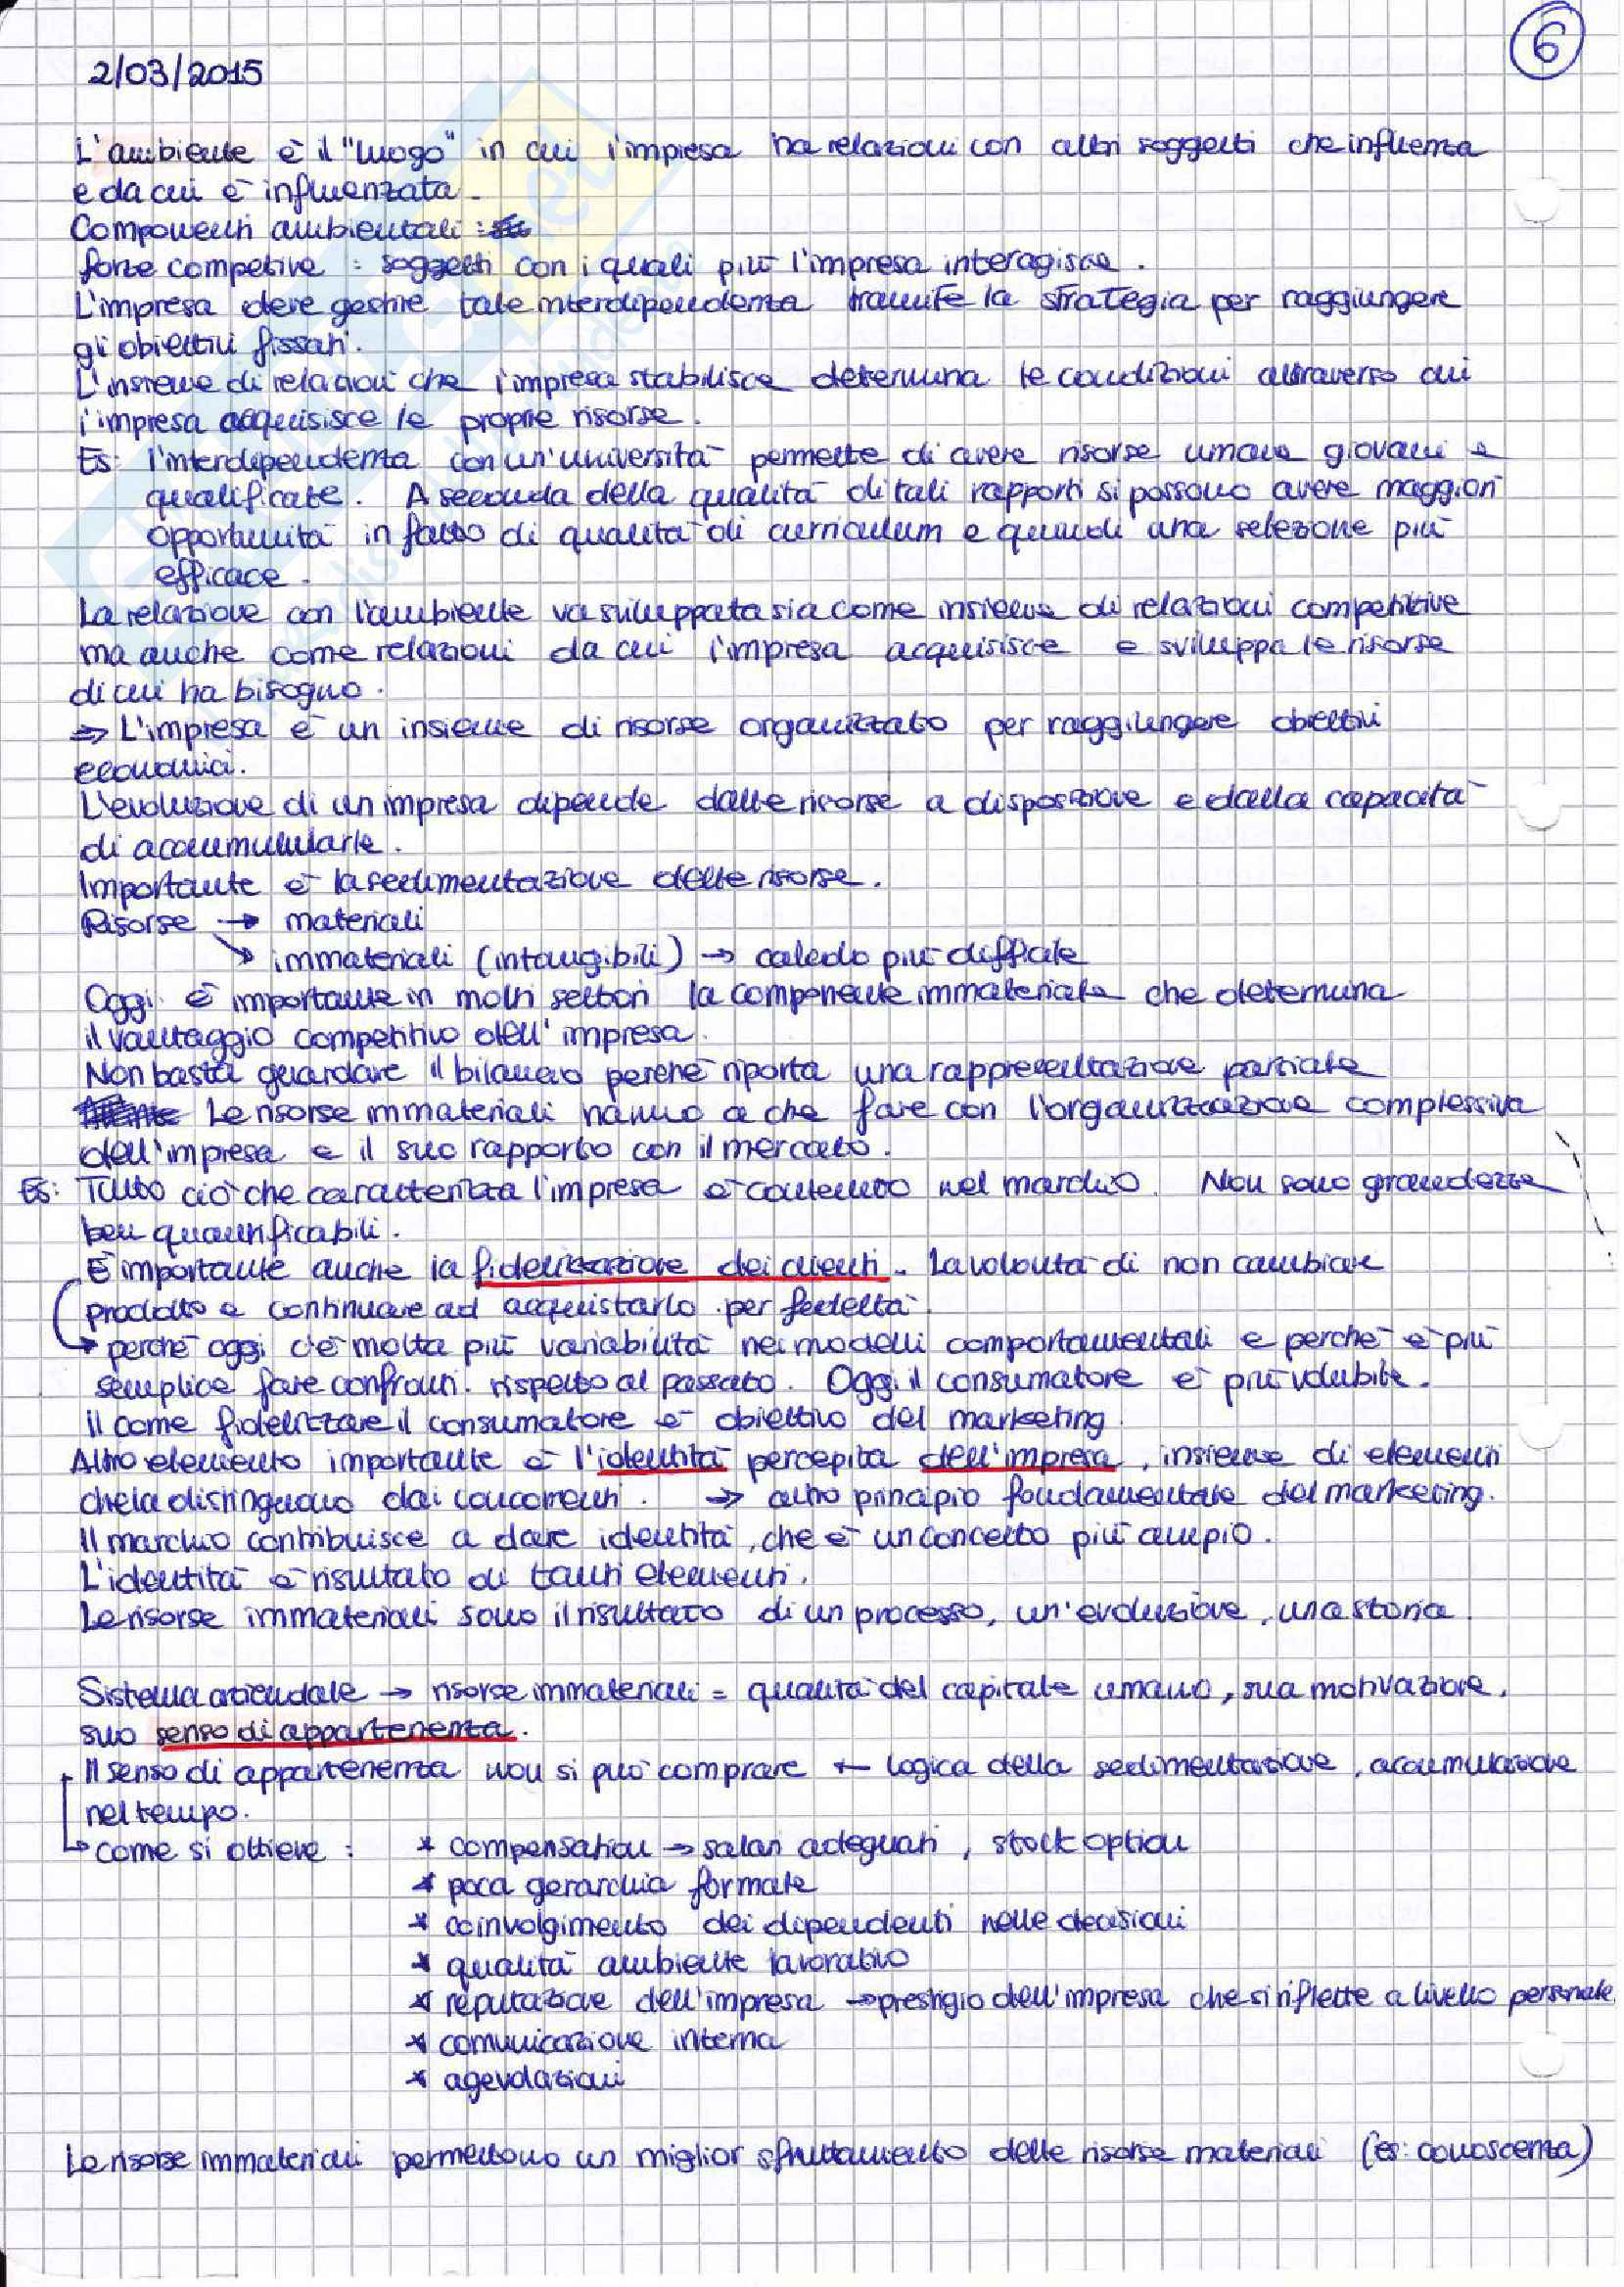 6
2/03/2015
L'ambiente è il "luogo" in cui l'impresa ha relazioni con altri soggetti che influenza
e da cui è influenzata.
Componenti ambientali:
forze competive : soggetti con i quali più l'impresa interagisce.
L'impresa deve gestire tale interdipendenza tramite la strategia per raggiungere
gli obiettivi fissati.
L'insieme di relazioni che l'impresa stabilisce determina le condizioni attraverso cui
l'impresa acquisisce le proprie risorse.
Es: l'interdipendenza con un'università permette di avere risorse umane giovani e
qualificate. A seconda della qualità di tali rapporti si possono avere maggiori
opportunità in fatto di qualità di curriculum e quindi una selezione più
efficace.
La relazione con l'ambiente va sviluppata sia come insieme di relazioni competitive
ma anche come relazioni da cui l'impresa acquisisce e sviluppa le risorse
di cui ha bisogno.
⇒ L'impresa è un insieme di risorse organizzato per raggiungere obiettivi
economici.
L'evoluzione di un impresa dipende dalle risorse a disposizione e dalla capacità
di accumulularle.
Importante è la sedimentazione delle risorse.
Risorse → materiali
↘ immateriali (intangibili) → calcolo più difficile
Oggi è importante in molti settori la componente immateriale che determina
il vantaggio competitivo dell'impresa.
Non basta guardare il bilancio perché riporta una rappresentazione parziale
Le risorse immateriali hanno a che fare con l'organizzazione complessiva
dell'impresa e il suo rapporto con il mercato.
Es: Tutto ciò che caratterizza l'impresa è contenuto nel marchio. Non sono grandezze
ben quantificabili.
È importante anche la fidelizzazione dei clienti. La volontà di non cambiare
prodotto e continuare ad acquistarlo per fedeltà.
→ perché oggi c'è molta più variabilità nei modelli comportamentali e perché è più
semplice fare confronti rispetto al passato. Oggi il consumatore è più volubile.
Il come fidelizzare il consumatore è obiettivo del marketing.
Altro elemento importante è l'identità percepita dell'impresa, insieme di elementi
che la distinguono dai concorrenti. ⇒ altro principio fondamentale del marketing.
Il marchio contribuisce a dare identità, che è un concetto più ampio.
L'identità è risultato di tanti elementi.
Le risorse immateriali sono il risultato di un processo, un'evoluzione, una storia.
Sistema aziendale → risorse immateriali = qualità del capitale umano, sua motivazione,
suo senso di appartenenza.
Il senso di appartenenza non si può comprare ← logica della sedimentazione, accumulazione
nel tempo.
↳ come si ottiene : * compensation → salari adeguati, stock option
* poca gerarchia formale
* coinvolgimento dei dipendenti nelle decisioni
* qualità ambiente lavorativo
* reputazione dell'impresa → prestigio dell'impresa che si riflette a livello personale
* comunicazione interna
* agevolazioni
Le risorse immateriali permettono un miglior sfruttamento delle risorse materiali (es: conoscenza)